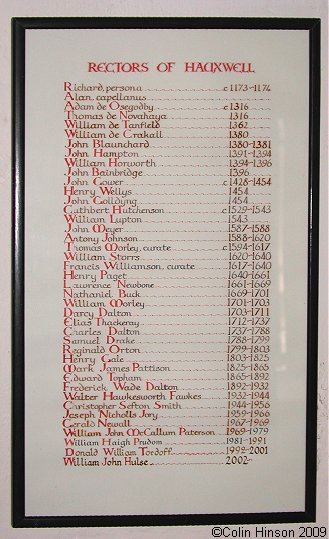 RECTORS OF HAUXWELL
Richard, persona c 1173-1174
Alan, capellanus
Adam de Osegodby c 1316
Thomas de Novahaya 1316
William de Tanfield 1362
William de Crakall 1380
John Blaunchard 1380-1381
John Hampton 1391-1394
William Horworth 1394-1396
John Bainbridge 1396
John Gower c 1428-1454
Henry Wellys 1454
John Goldyng 1454
Cuthbert Hutchenson c 1529-1543
William Lupton 1543
John Meyer 1587-1588
Antony Johnson 1588-1620
Thomas Morley, curate c 1594-1617
William Storrs 1620-1640
Francis Williamson, curate 1617-1640
Henry Paget 1640-1661
Lawrence Newbone 1661-1669
Nathaniel Buck 1669-1701
William Morley 1701-1703
Darcy Dalton 1703-1711
Elias Thackeray 1712-1737
Charles Dalton 1737-1788
Samuel Drake 1788-1799
Reginald Orton 1799-1803
Henry Gale 1803-1825
Mark James Pattison 1825-1865
Edward Topham 1865-1892
Frederick Wade Dalton 1892-1932
Walter Hawkesworth Fawkes 1932-1944
Christopher Sefton Smith 1944-1956
Joseph Nicholls Jory 1959-1966
Gerald Newall 1967-1969
William John McCallum Paterson 1969-1979
William Haigh Prudom 1981-1991
Donald William Tordoff 1992-2001
William John Hulse 2002-
©Colin Hinson 2009